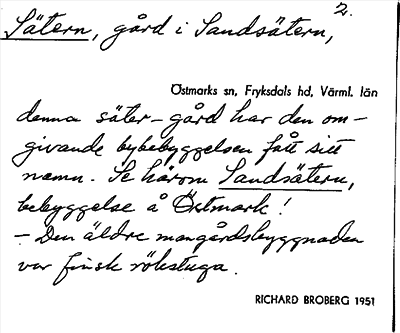 2.
Sätern, gård i Sandsätern,
Östmarks sn, Fryksdals hd, Värml. län
denna säter-gård har den om-
givande bybebyggelsen fått sitt
namn. Se härom Sandsätern,
bebyggelse å Östmark!
- Den äldre mangårdsbyggnaden
var finsk rökstuga.
RICHARD BROBERG 1951